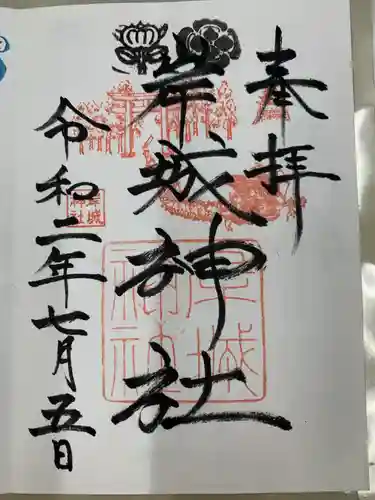 奉拝
岸城神社
令和二年七月五日
岸城
神社
岸城
神社